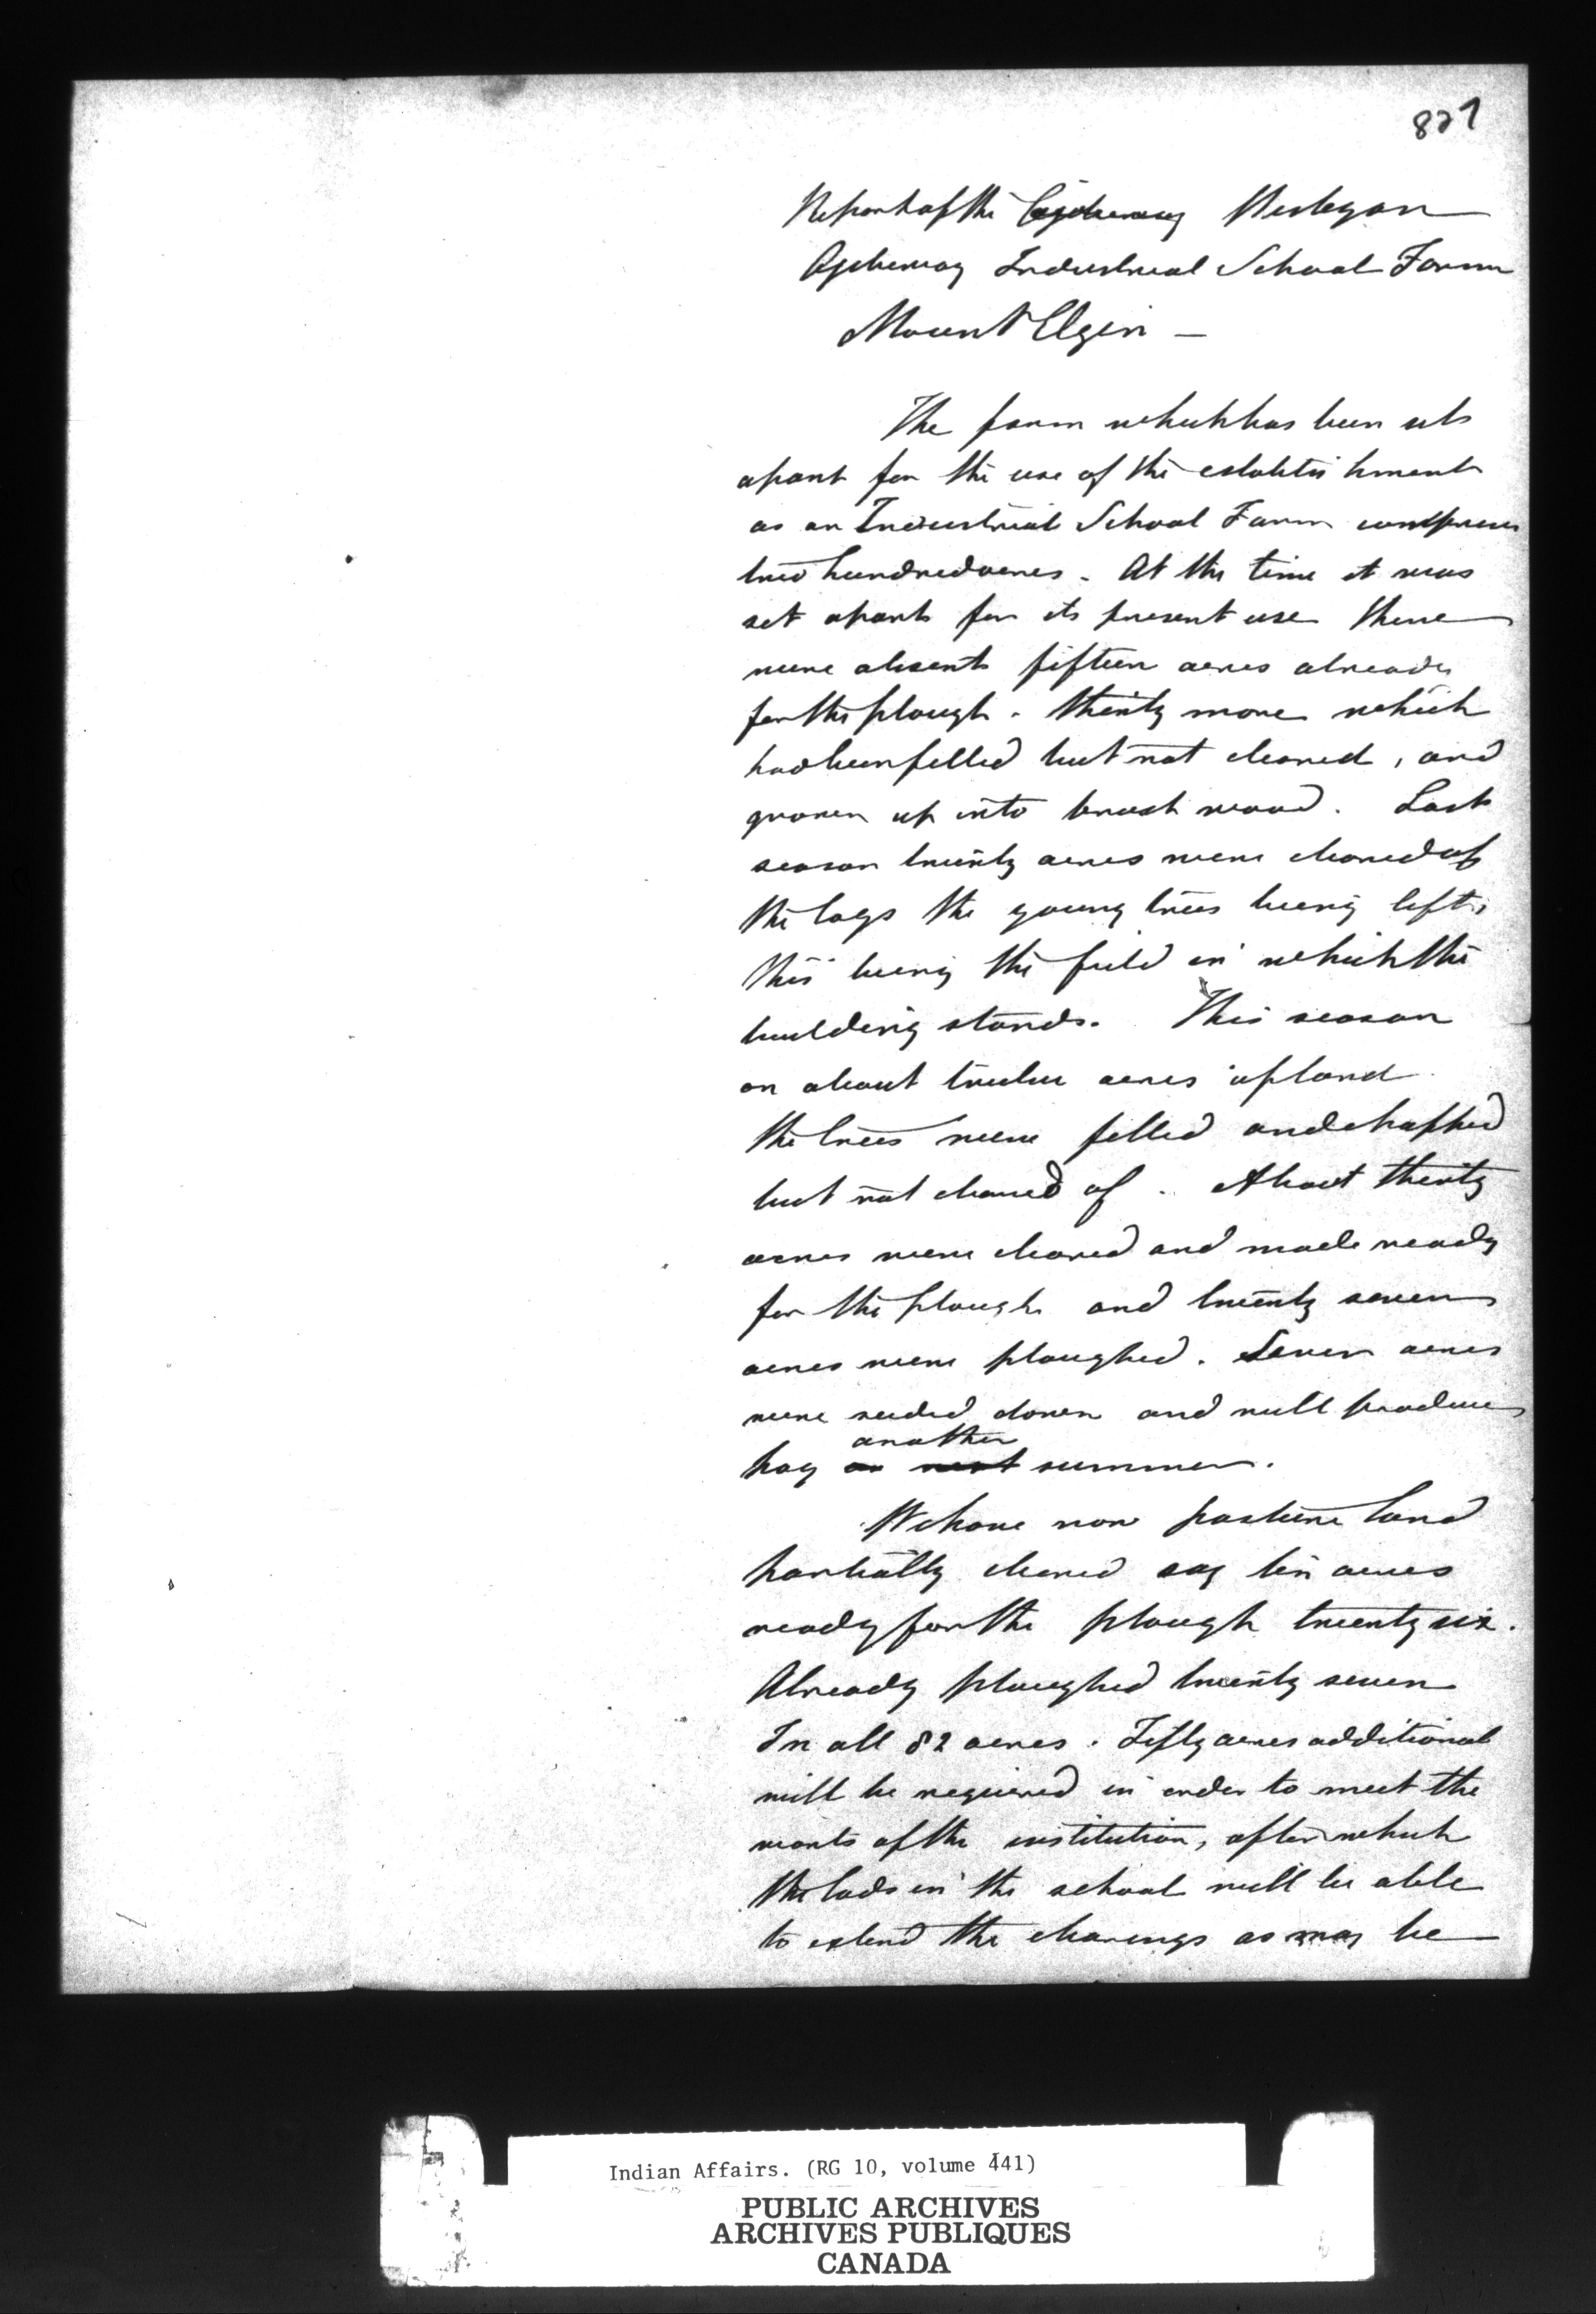 827
Report of the Ojibeway Wesleyan
Ojebeway Industrial School Farm
Mount Elgin —
The farm which has been set
apart for the use of the establishment
as an Industrial School Farm comprises
two hundred acres. At the time it was
set apart for its present use there
were about fifteen acres already
for the plough. thirty more which
had been felled but not cleared, and
grown up into brush wood. Last
season twenty acres were cleared of
the logs the young trees being left,
this being the field in which the
building stands. This season
on about twelve acres upland
the trees were felled and chopped
but not cleared of. About thirty
acres were cleared and made ready
for the plough and twenty seven
acres were ploughed. Seven acres
were seeded down and will produce
another
hay on next summer.
We have now pasture land
partially cleared say ten acres
ready for the plough twenty six.
Already ploughed twenty seven
In all 82 acres. Fifty acres additional
will be required in order to meet the
wants of the institution, after which
the lads in the school will be able
to extend the clearings as may be
Indian Affairs. (RG 10, volume 441)
PUBLIC ARCHIVES
ARCHIVES PUBLIQUES
CANADA